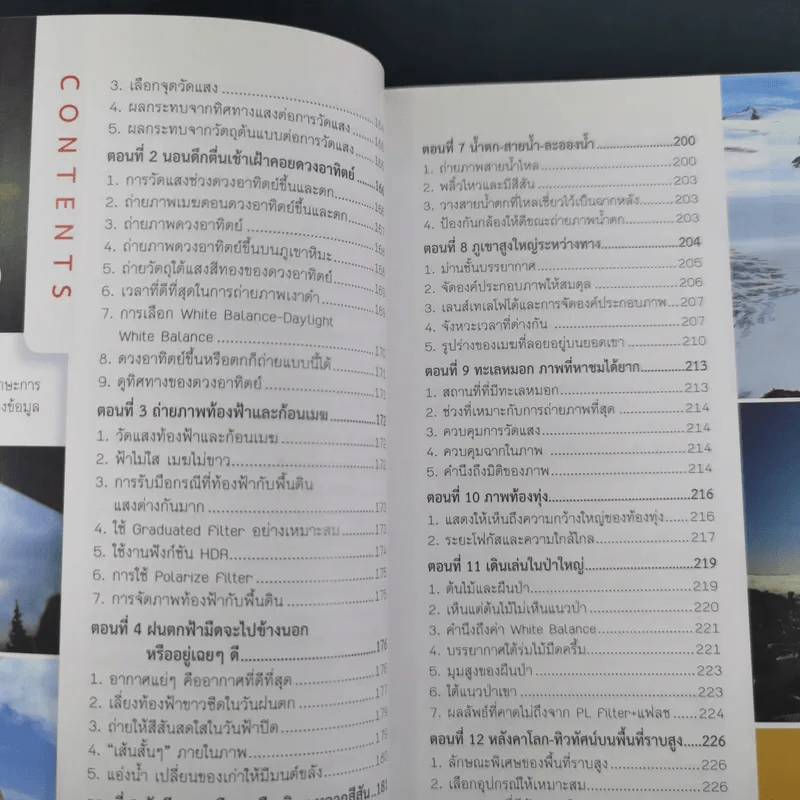 CONTENTS
3. เลือกจุดวัดแสง
4. ผลกระทบจากทิศทางแสงต่อการวัดแสง 164
5. ผลกระทบจากวัตถุต้นแบบต่อการวัดแสง 165
ตอนที่ 2 นอนดึกตื่นเช้าเฝ้าคอยดวงอาทิตย์
1. การวัดแสงช่วงดวงอาทิตย์ขึ้นและตก
2. ถ่ายภาพเมฆตอนดวงอาทิตย์ขึ้นและตก
3. ถ่ายภาพดวงอาทิตย์ 168
4. ถ่ายภาพดวงอาทิตย์ขึ้นบนภูเขาหิมะ 168
5. ถ่ายวัตถุใต้แสงสีทองของดวงอาทิตย์ 169
6. เวลาที่ดีที่สุดในการถ่ายภาพเงาดำ 169
7. การเลือก White Balance-Daylight
White Balance 170
8. ดวงอาทิตย์ขึ้นหรือตกก็ถ่ายแบบนี้ได้ 171
9. ดูทิศทางของดวงอาทิตย์ 171
ตอนที่ 3 ถ่ายภาพท้องฟ้าและก้อนเมฆ 172
1. วัดแสงท้องฟ้าและก้อนเมฆ 172
2. ฟ้าไม่ใส เมฆไม่ขาว
3. การรับมือกรณีที่ท้องฟ้ากับพื้นดิน
แสงต่างกันมาก 173
4. ใช้ Graduated Filter อย่างเหมาะสม 173
5. ใช้งานฟังก์ชัน HDR 174
6. การใช้ Polarize Filter 175
7. การจัดภาพท้องฟ้ากับพื้นดิน 175
ตอนที่ 4 ฝนตกฟ้ามืดจะไปข้างนอก
หรืออยู่เฉยๆ ดี 176
1. อากาศแย่ๆ คืออากาศที่ดีที่สุด 176
2. เลี่ยงท้องฟ้าขาวซีดในวันฝนตก 177
3. ถ่ายให้สีสันสดใสในวันฟ้าปิด 179
4. "เส้นสั้นๆ" ภายในภาพ 179
5. แอ่งน้ำ เปลี่ยนของเก่าให้มีมนต์ขลัง 180
181
ษะการ
งข้อมูล
ตอนที่ 7 น้ำตก-สายน้ำ-ละอองน้ำ 200
1. ถ่ายภาพสายน้ำไหล 200
2. พลิ้วไหวและมีสีสัน 203
3. วางสายน้ำตกที่ไหลเชี่ยวไว้เป็นฉากหลัง 203
4. ป้องกันกล้องให้ดีขณะถ่ายภาพน้ำตก 203
ตอนที่ 8 ภูเขาสูงใหญ่ระหว่างทาง 204
1. ม่านชั้นบรรยากาศ 205
2. จัดองค์ประกอบภาพให้สมดุล 206
3. เลนส์เทเลโฟโต้และการจัดองค์ประกอบภาพ 207
4. จังหวะเวลาที่ต่างกัน 207
5. รูปร่างของเมฆที่ลอยอยู่บนยอดเขา 210
ตอนที่ 9 ทะเลหมอก ภาพที่หาชมได้ยาก 213
1. สถานที่ที่มีทะเลหมอก 213
2. ช่วงที่เหมาะกับการถ่ายภาพที่สุด 214
3. ควบคุมการวัดแสง 214
4. ควบคุมฉากในภาพ 214
5. คำนึงถึงมิติของภาพ 214
ตอนที่ 10 ภาพท้องทุ่ง 216
1. แสดงให้เห็นถึงความกว้างใหญ่ของท้องทุ่ง 216
2. ระยะโฟกัสและความใกล้ไกล 217
ตอนที่ 11 เดินเล่นในป่าใหญ่ 219
1. ต้นไม้และผืนป่า 219
2. เห็นแต่ต้นไม้ไม่เห็นแนวป่า 220
3. คำนึงถึงค่า White Balance 221
4. บรรยากาศใต้ร่มไม้มืดครึ้ม 221
5. มุมสูงของผืนป่า 223
6. ใต้แนวป่าเขา 223
7. ผลลัพธ์ที่คาดไม่ถึงจาก PL Filter+แฟลช 224
ตอนที่ 12 หลังคาโลก-ทิวทัศน์บนพื้นที่ราบสูง 226
1. ลักษณะพิเศษของพื้นที่ราบสูง 226
2. เลือกอุปกรณ์ให้เหมาะสม 226